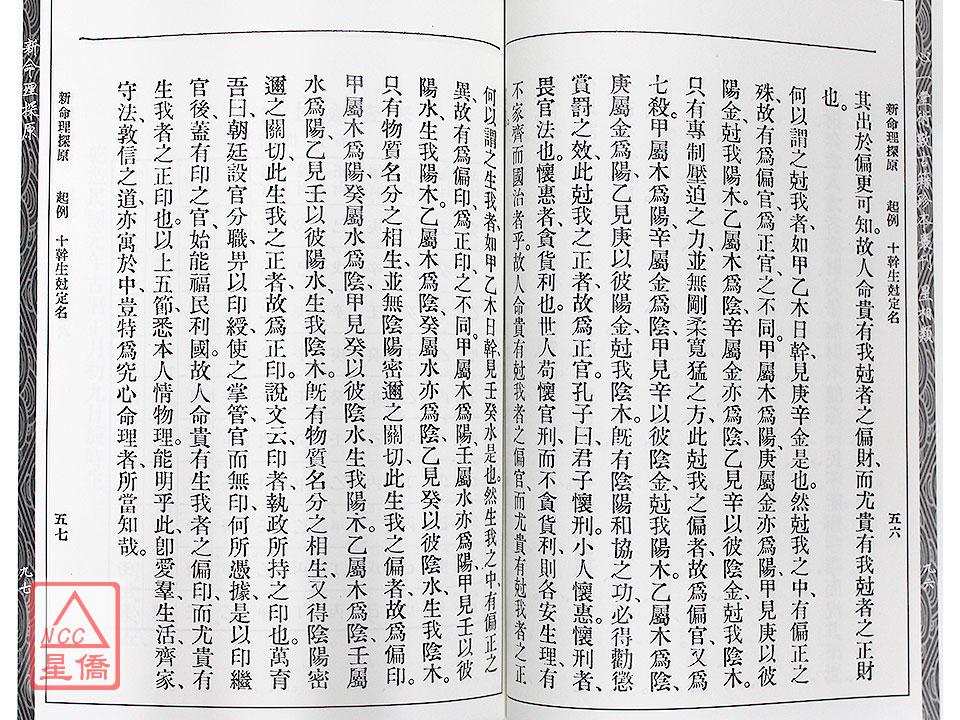 新命理探原　起例　十幹生尅定名
五六
其出於偏更可知。故人命貴有我尅者之偏財、而尤貴有我尅者之正財
也。
何以謂之尅我者、如甲乙木日幹、見庚辛金是也。然尅我之中、有偏正之
殊、故有爲偏官、爲正官之不同。甲屬木爲陽、庚屬金亦爲陽、甲見庚以彼
陽金、尅我陽木。乙屬木爲陰、辛屬金亦爲陰、乙見辛以彼陰金、尅我陰木。
只有專制壓迫之力、並無剛柔寬猛之方、此尅我之偏者、故爲偏官、又爲
七殺。甲屬木爲陽、辛屬金爲陰、甲見辛以彼陰金、尅我陽木。乙屬木爲陰、
庚屬金爲陽、乙見庚以彼陽金、尅我陰木。旣有陰陽和協之功、必得勸懲
賞罰之效、此尅我之正者、故爲正官。孔子曰、君子懷刑、小人懷惠。懷刑者、
畏官法也。懷惠者、貪貨利也。世人苟懷官刑、而不貪貨利、則各安生理、有
不家齊而國治者乎。故人命貴有尅我者之偏官、而尤貴有尅我者之正
何以謂之生我者、如甲乙木日幹、見壬癸水是也。然生我之中、有偏正之
異、故有爲偏印、爲正印之不同。甲屬木爲陽、壬屬水亦爲陽、甲見壬以彼
陽水、生我陽木。乙屬木爲陰、癸屬水亦爲陰、乙見癸以彼陰水、生我陰木。
只有物質名分之相生、並無陰陽密邇之關切、此生我之偏者、故爲偏印。
甲屬木爲陽、癸屬水爲陰、甲見癸以彼陰水、生我陽木。乙屬木爲陰、壬屬
水爲陽、乙見壬以彼陽水、生我陰木。旣有物質名分之相生、又得陰陽密
邇之關切、此生我之正者、故爲正印。說文云、印者、執政所持之印也。萬育
吾曰、朝廷設官分職、畀以印綬、使之掌管、官而無印、何所憑據、是以印繼
官後、蓋有印之官、始能福民利國。故人命貴有生我者之偏印、而尤貴有
生我者之正印也。以上五節、悉本人情物理。能明乎此、卽愛羣生活、齊家、
守法、敦信之道、亦寓於中、豈特爲究心命理者所當知哉。
新命理探原　起例　十幹生尅定名
五七
新命理探原
九七
NCC
星僑